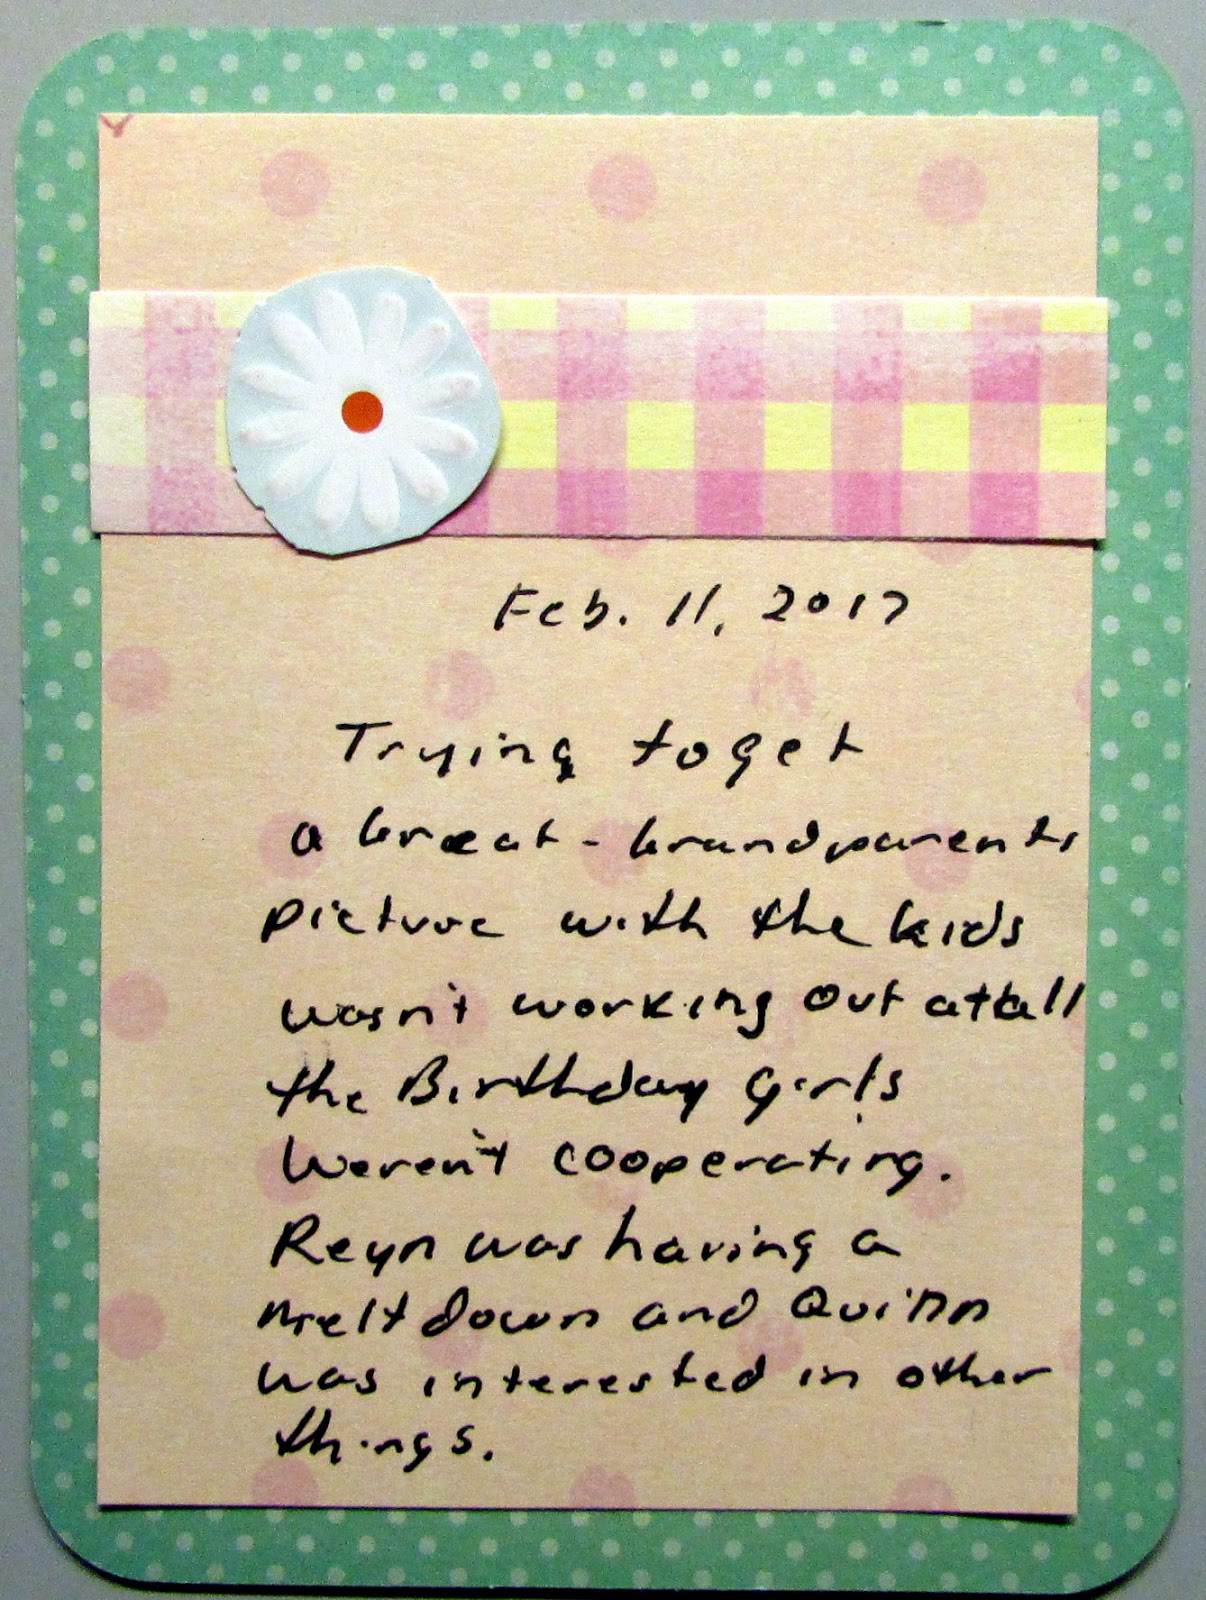 Feb. 11, 2017
Trying to get
a Great-Grandparents
picture with the kids
wasn't working out at all
the Birthday girls
weren't cooperating.
Reyn was having a
melt down and Quinn
was interested in other
things.